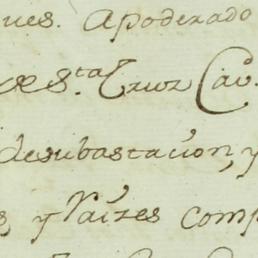 ues. Apoderado
de S.ta Cruz Cav.
desubastacion, y
s, y Raizes comp